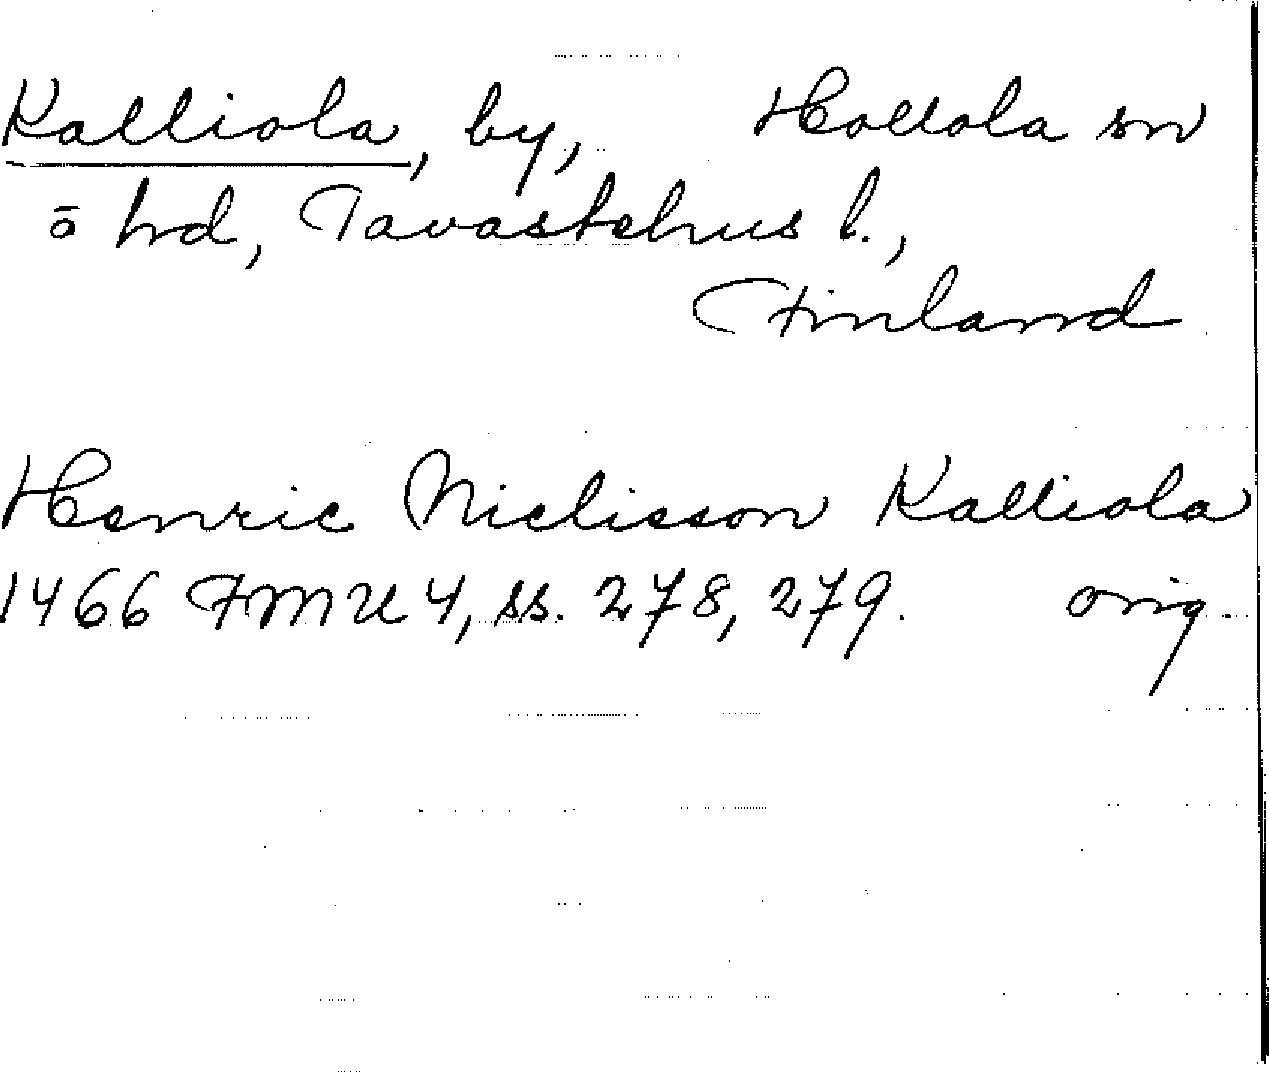 Kalliola, by, Hollola sn
ō hd, Tavastehus l.,
Finland
Henric Niclisson Kalliola
1466 FMU 4, ss. 278, 279. orig.